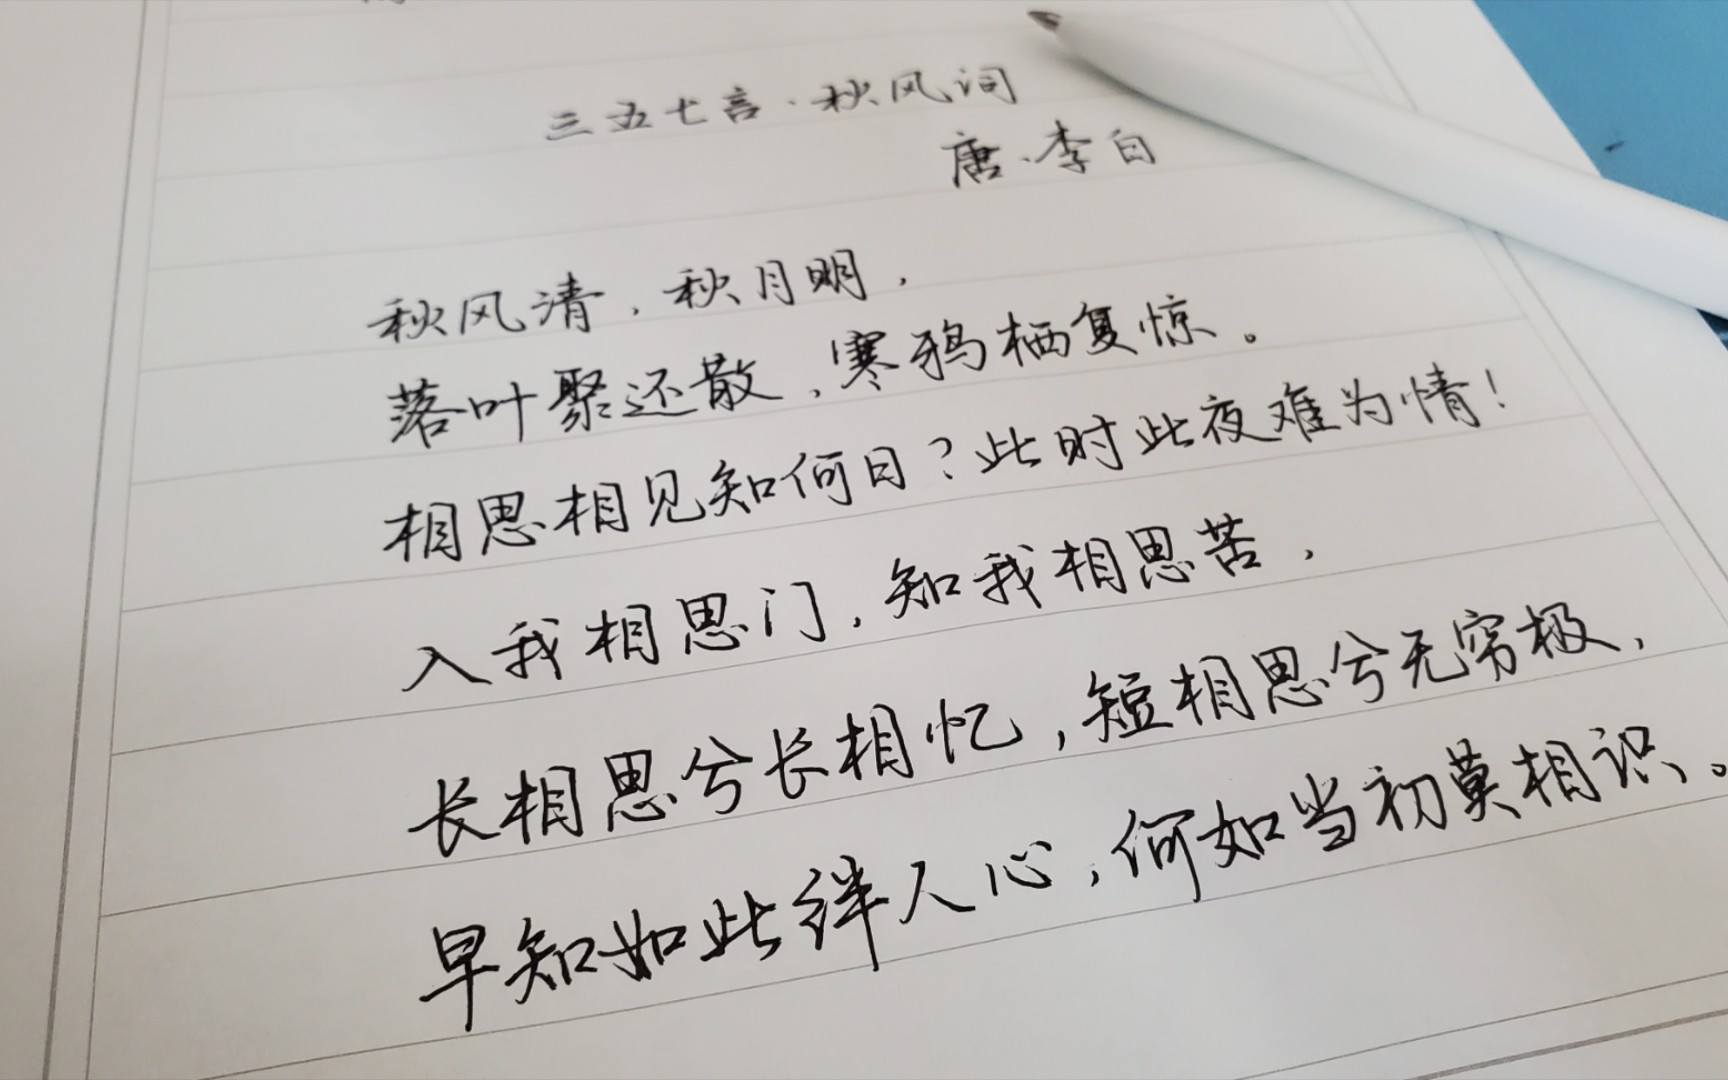 三五七言·秋风词
唐·李白
秋风清，秋月明，
落叶聚还散，寒鸦栖复惊。
相思相见知何日？此时此夜难为情！
入我相思门，知我相思苦，
长相思兮长相忆，短相思兮无穷极，
早知如此绊人心，何如当初莫相识。